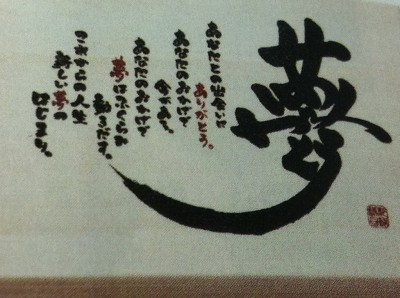 夢
あなたとの出会いに
ありがとう。
あなたのおかげで
今がある。
あなたのおかげで
夢はふくらみ
動きだす。
これからの人生
新しい夢の
はじまり。